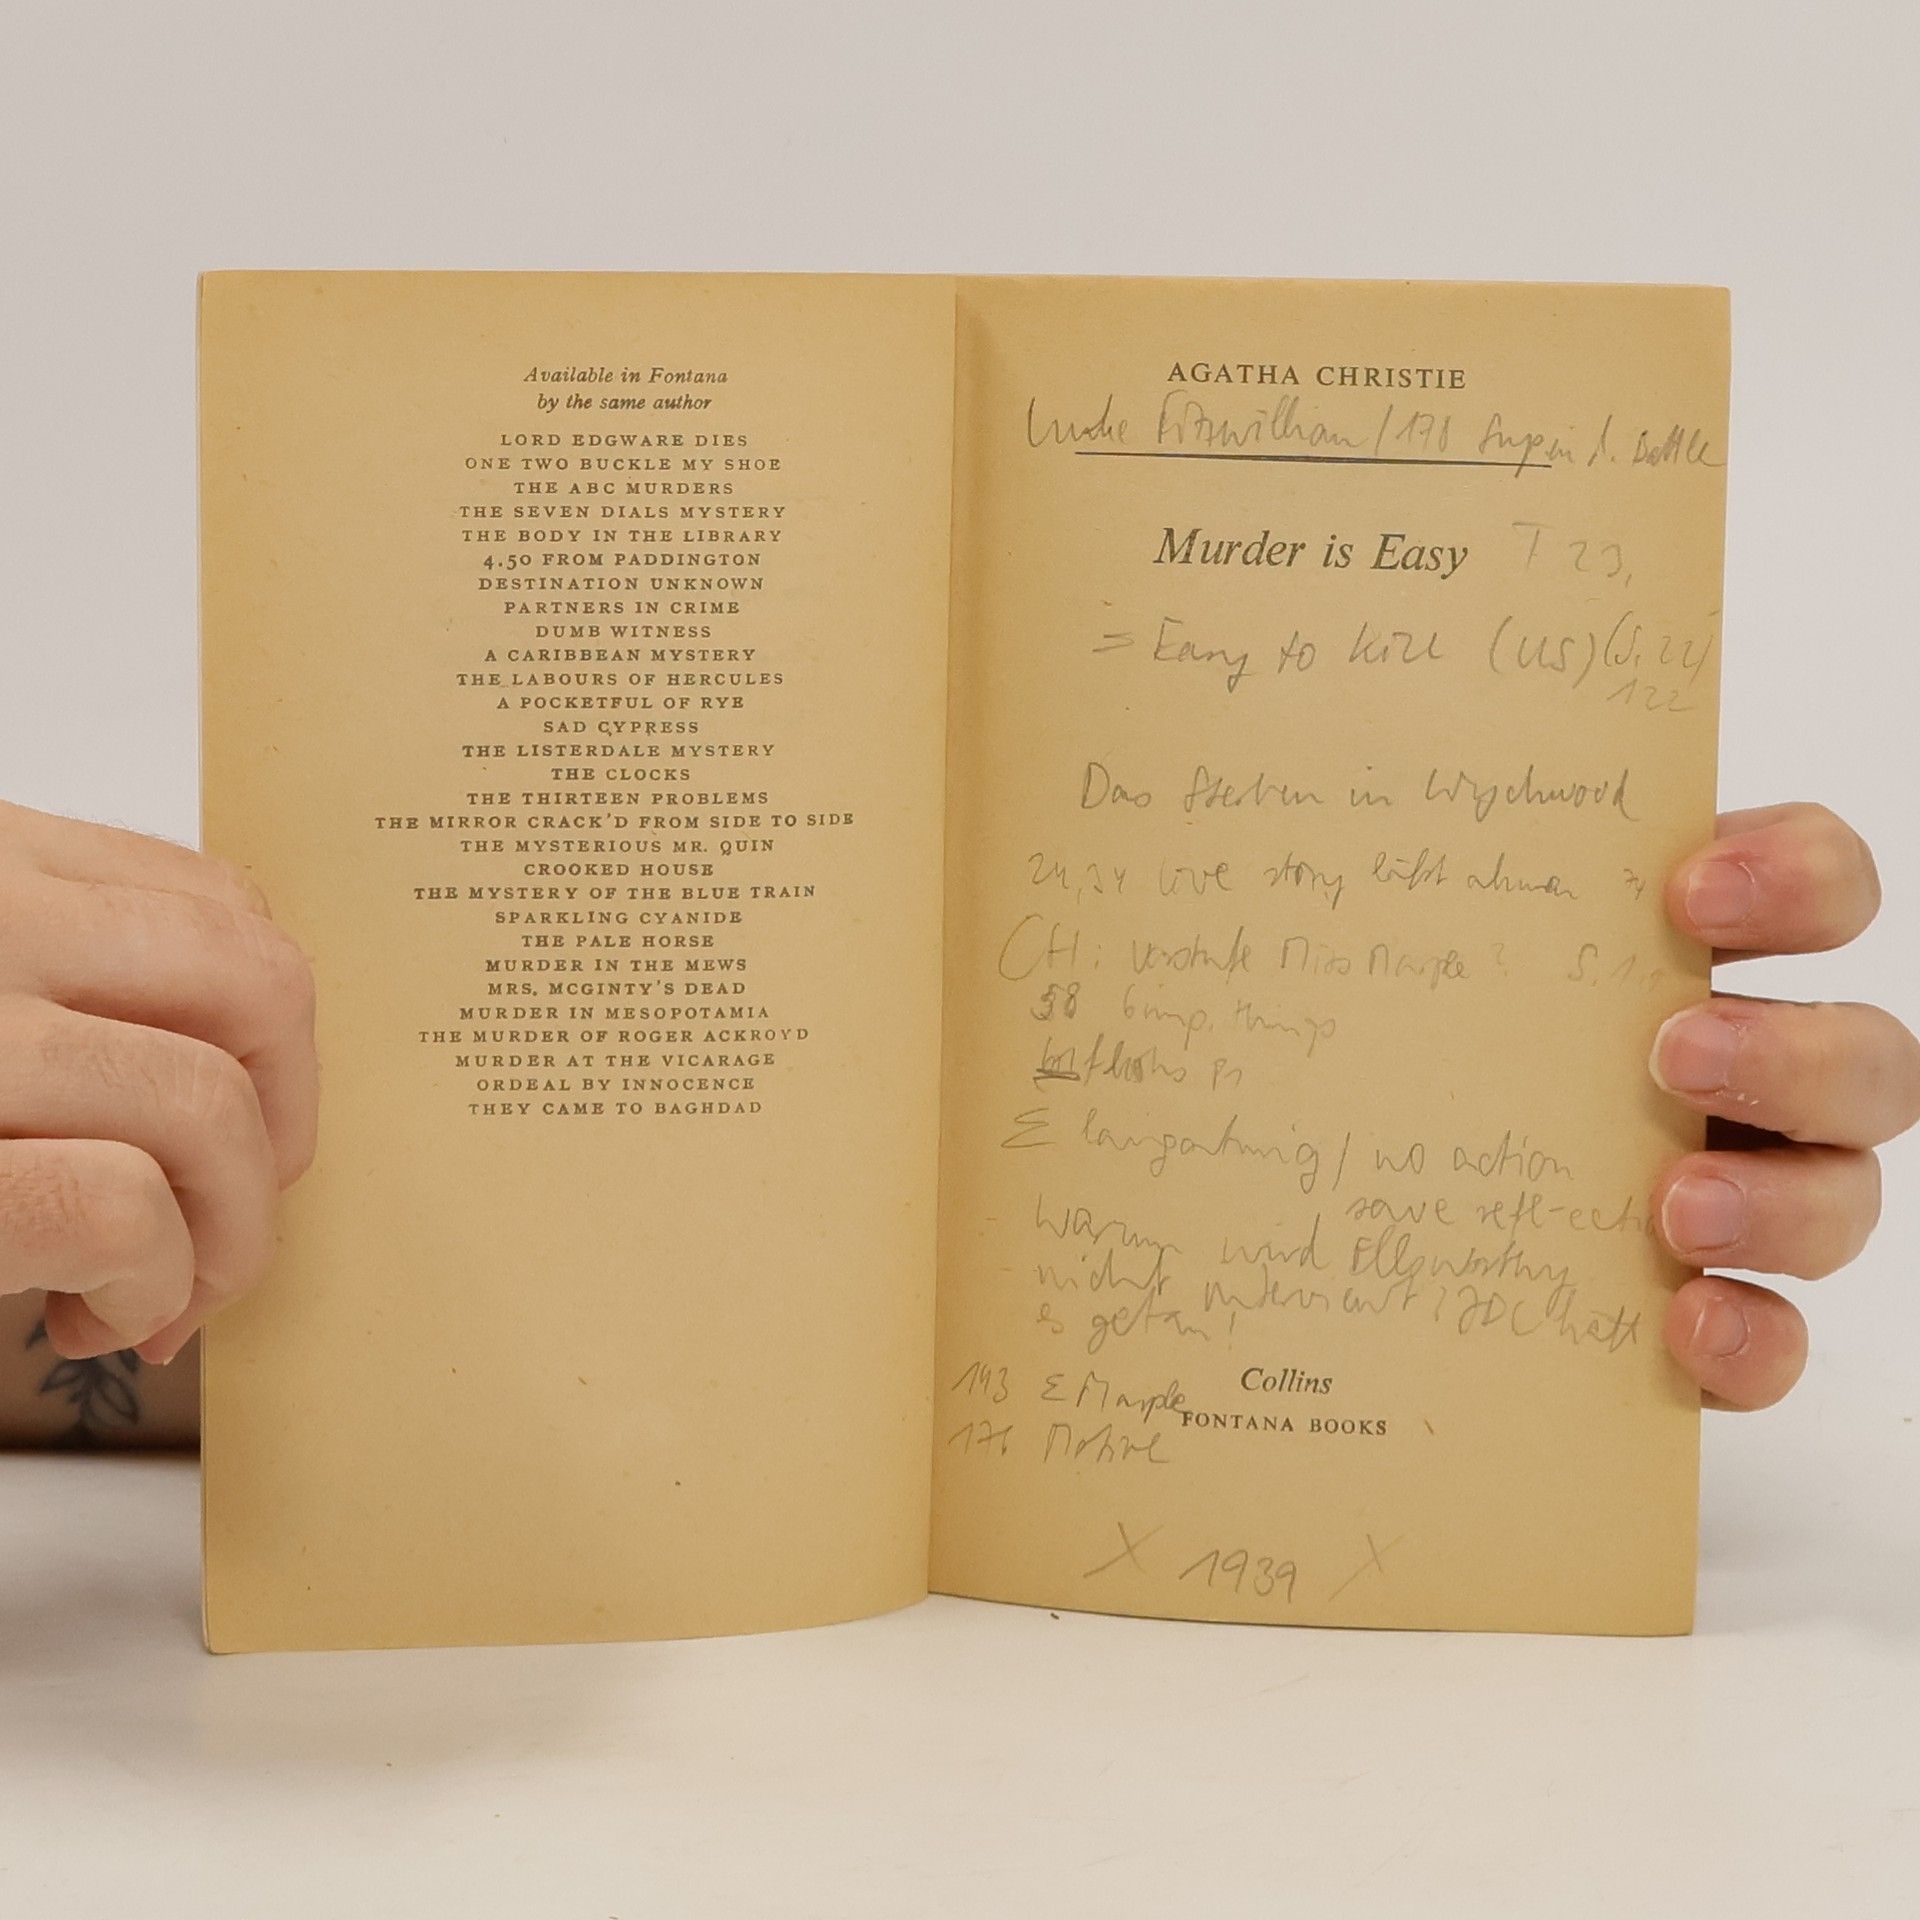 Available in Fontana
by the same author
LORD EDGWARE DIES
ONE TWO BUCKLE MY SHOE
THE ABC MURDERS
THE SEVEN DIALS MYSTERY
THE BODY IN THE LIBRARY
4.50 FROM PADDINGTON
DESTINATION UNKNOWN
PARTNERS IN CRIME
DUMB WITNESS
A CARIBBEAN MYSTERY
THE LABOURS OF HERCULES
A POCKETFUL OF RYE
SAD CYPRESS
THE LISTERDALE MYSTERY
THE CLOCKS
THE THIRTEEN PROBLEMS
THE MIRROR CRACK'D FROM SIDE TO SIDE
THE MYSTERIOUS MR. QUIN
CROOKED HOUSE
THE MYSTERY OF THE BLUE TRAIN
SPARKLING CYANIDE
THE PALE HORSE
MURDER IN THE MEWS
MRS. MCGINTY'S DEAD
MURDER IN MESOPOTAMIA
THE MURDER OF ROGER ACKROYD
MURDER AT THE VICARAGE
ORDEAL BY INNOCENCE
THEY CAME TO BAGHDAD
AGATHA CHRISTIE
Luke Fitzwilliam / 178 Battle
Murder is Easy T 23,
= Easy to kill (US) (S. 22)
122
Das Sterben in Wychwood
24, 34 love story läßt ahnen 74
CH: Vorstufe Miss Marple?
58 6 imp. things
Σ langatmig / no action
save reflection
Warum wird Ellsworthy
nicht interviewt? JDC hätt
es getan!
143 Σ Marple
176 Motive
Collins
FONTANA BOOKS
X 1939 X